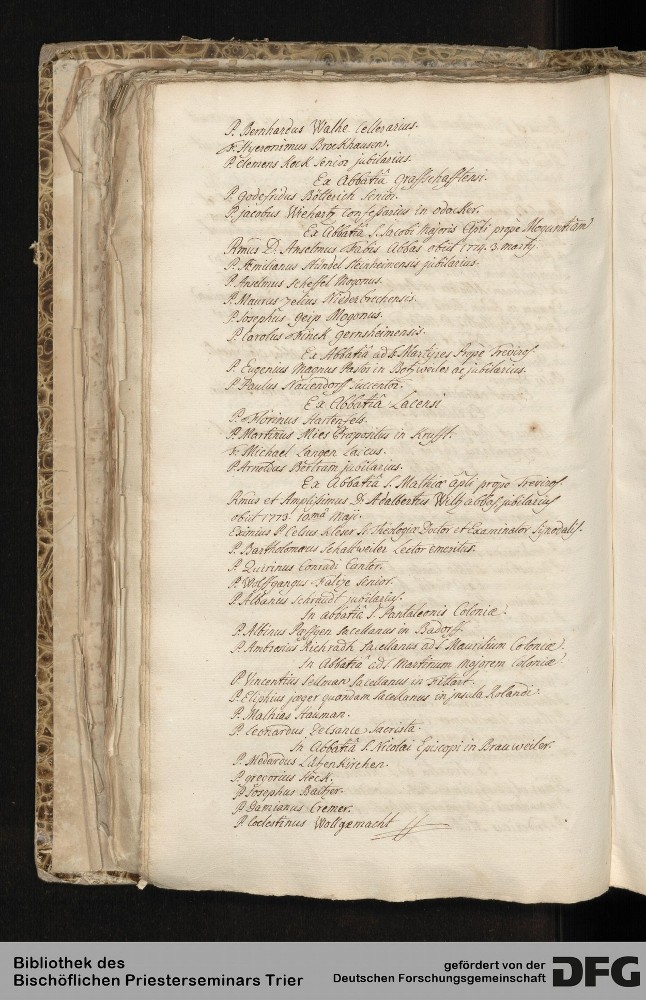 P. Bernhardus Wathe Cellerarius.
Fr. Hyeronimus Brockhausen.
P. Clemens Kock Senior jubilarius.
Ex Abbatiâ Grafschafftensi.
P. Godefridus Bölterich Senior.
P. jacobus Wiehartz Confessarius in odacker.
Ex Abbatiâ S. Jacobi Majoris Apli prope Moguntiam
Rmus D. Anselmus Abbas obiit 1774. 3. marty.
P. Æmilianus Hündel Steinheimensis jubilarius.
P. Anselmus Scheffel Mogonus.
P. Maurus Zelius Niederbrechensis.
P. Josephus Geip Mogonus.
P. Carolus Finck Gernsheimensis.
Ex Abbatiâ ad S. Martyres Prope Treviros.
P. Eugenius Magnus Pastor in Botzweiler ac jubilarius.
P. Paulus Nattendorff Succentor.
Ex Abbatiâ Lacensi
P. Florinus Hartenfels.
P. Martinus Mies Præpositus in Krufft.
Fr. Michael Langen Laicus.
P. Arnoldus Bertram jubilarius.
Ex Abbatiâ S. Mathiæ Apli prope Treviros.
Rmus et Amplissimus D. Adalbertus Wiltz abbas jubilarius
obiit 1773. 10mâ Maji.
Eximius P. Celsus Kleser SS. Theologiæ Doctor et Examinator Synodalis.
P. Bartholomæus Schallweiler Lector emeritus.
P. Quirinus Conradi Cantor.
P. Wolffgangus Senior.
P. Albanus Schraudt jubilarius.
In abbatiâ S. Pantaleonis Coloniæ.
P. Albinus Päffgen Sacellanus in Badorff
P. Ambrosius Richradh Sacellanus ad S. Mauritium Coloniæ.
In Abbatiâ ad S. Martinum Majorem Coloniæ.
P. Vincentius Seilman Sacellanus in Fissart.
P. Eliphius jæger quondam Sacellanus in Jnsula Rolandi.
P. Mathias Hauman.
P. Leonardus Delsance Sacrista.
In Abbatiâ S. Nicolai Episcopi in Brauweiler.
P. Medardus Lützenkirchen.
P. gregorius Heck.
P. Josephus Balther.
P. Damianus Cremer.
P. Coelestinus Wollgemacht
Bibliothek des
Bischöflichen Priesterseminars Trier
gefördert von der
Deutschen Forschungsgemeinschaft
DFG